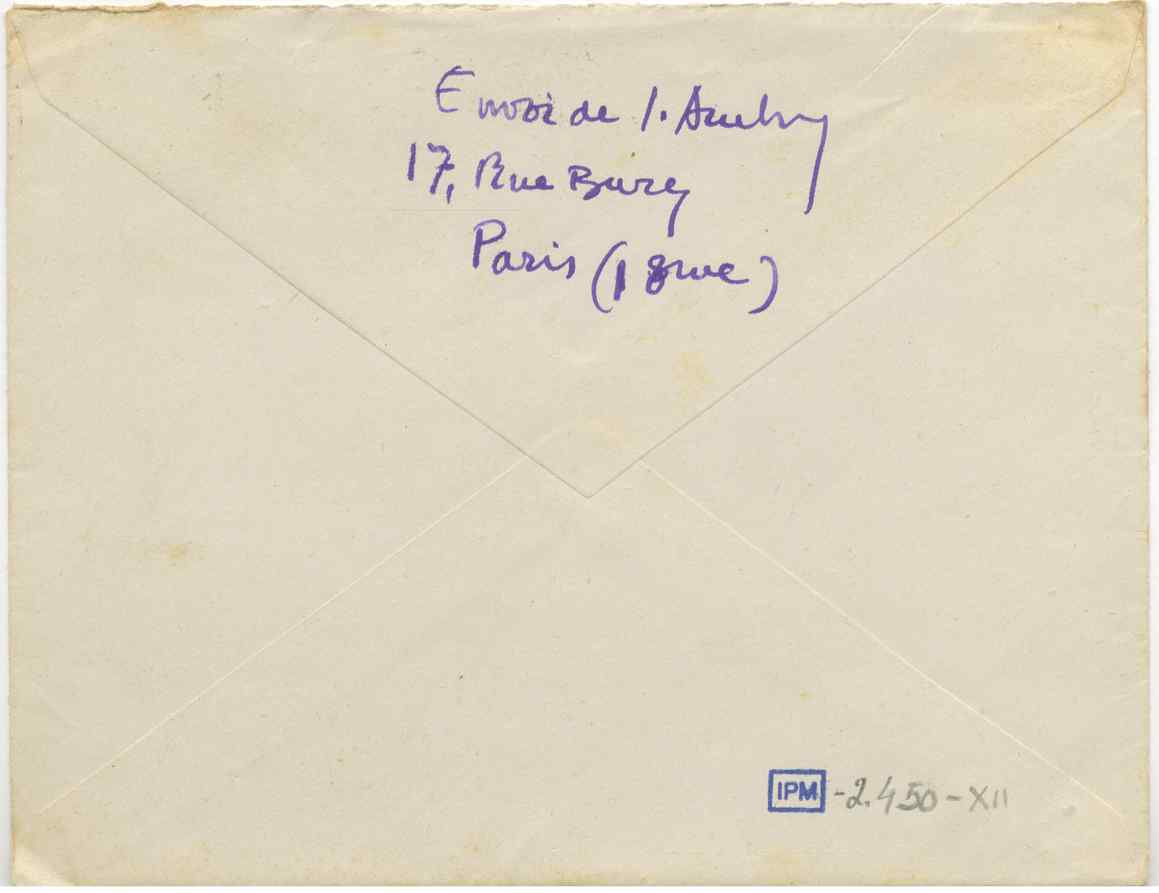 Envoi de J. Aubry
17, Rue Burq
Paris (18me)
IPM -2.450-XII